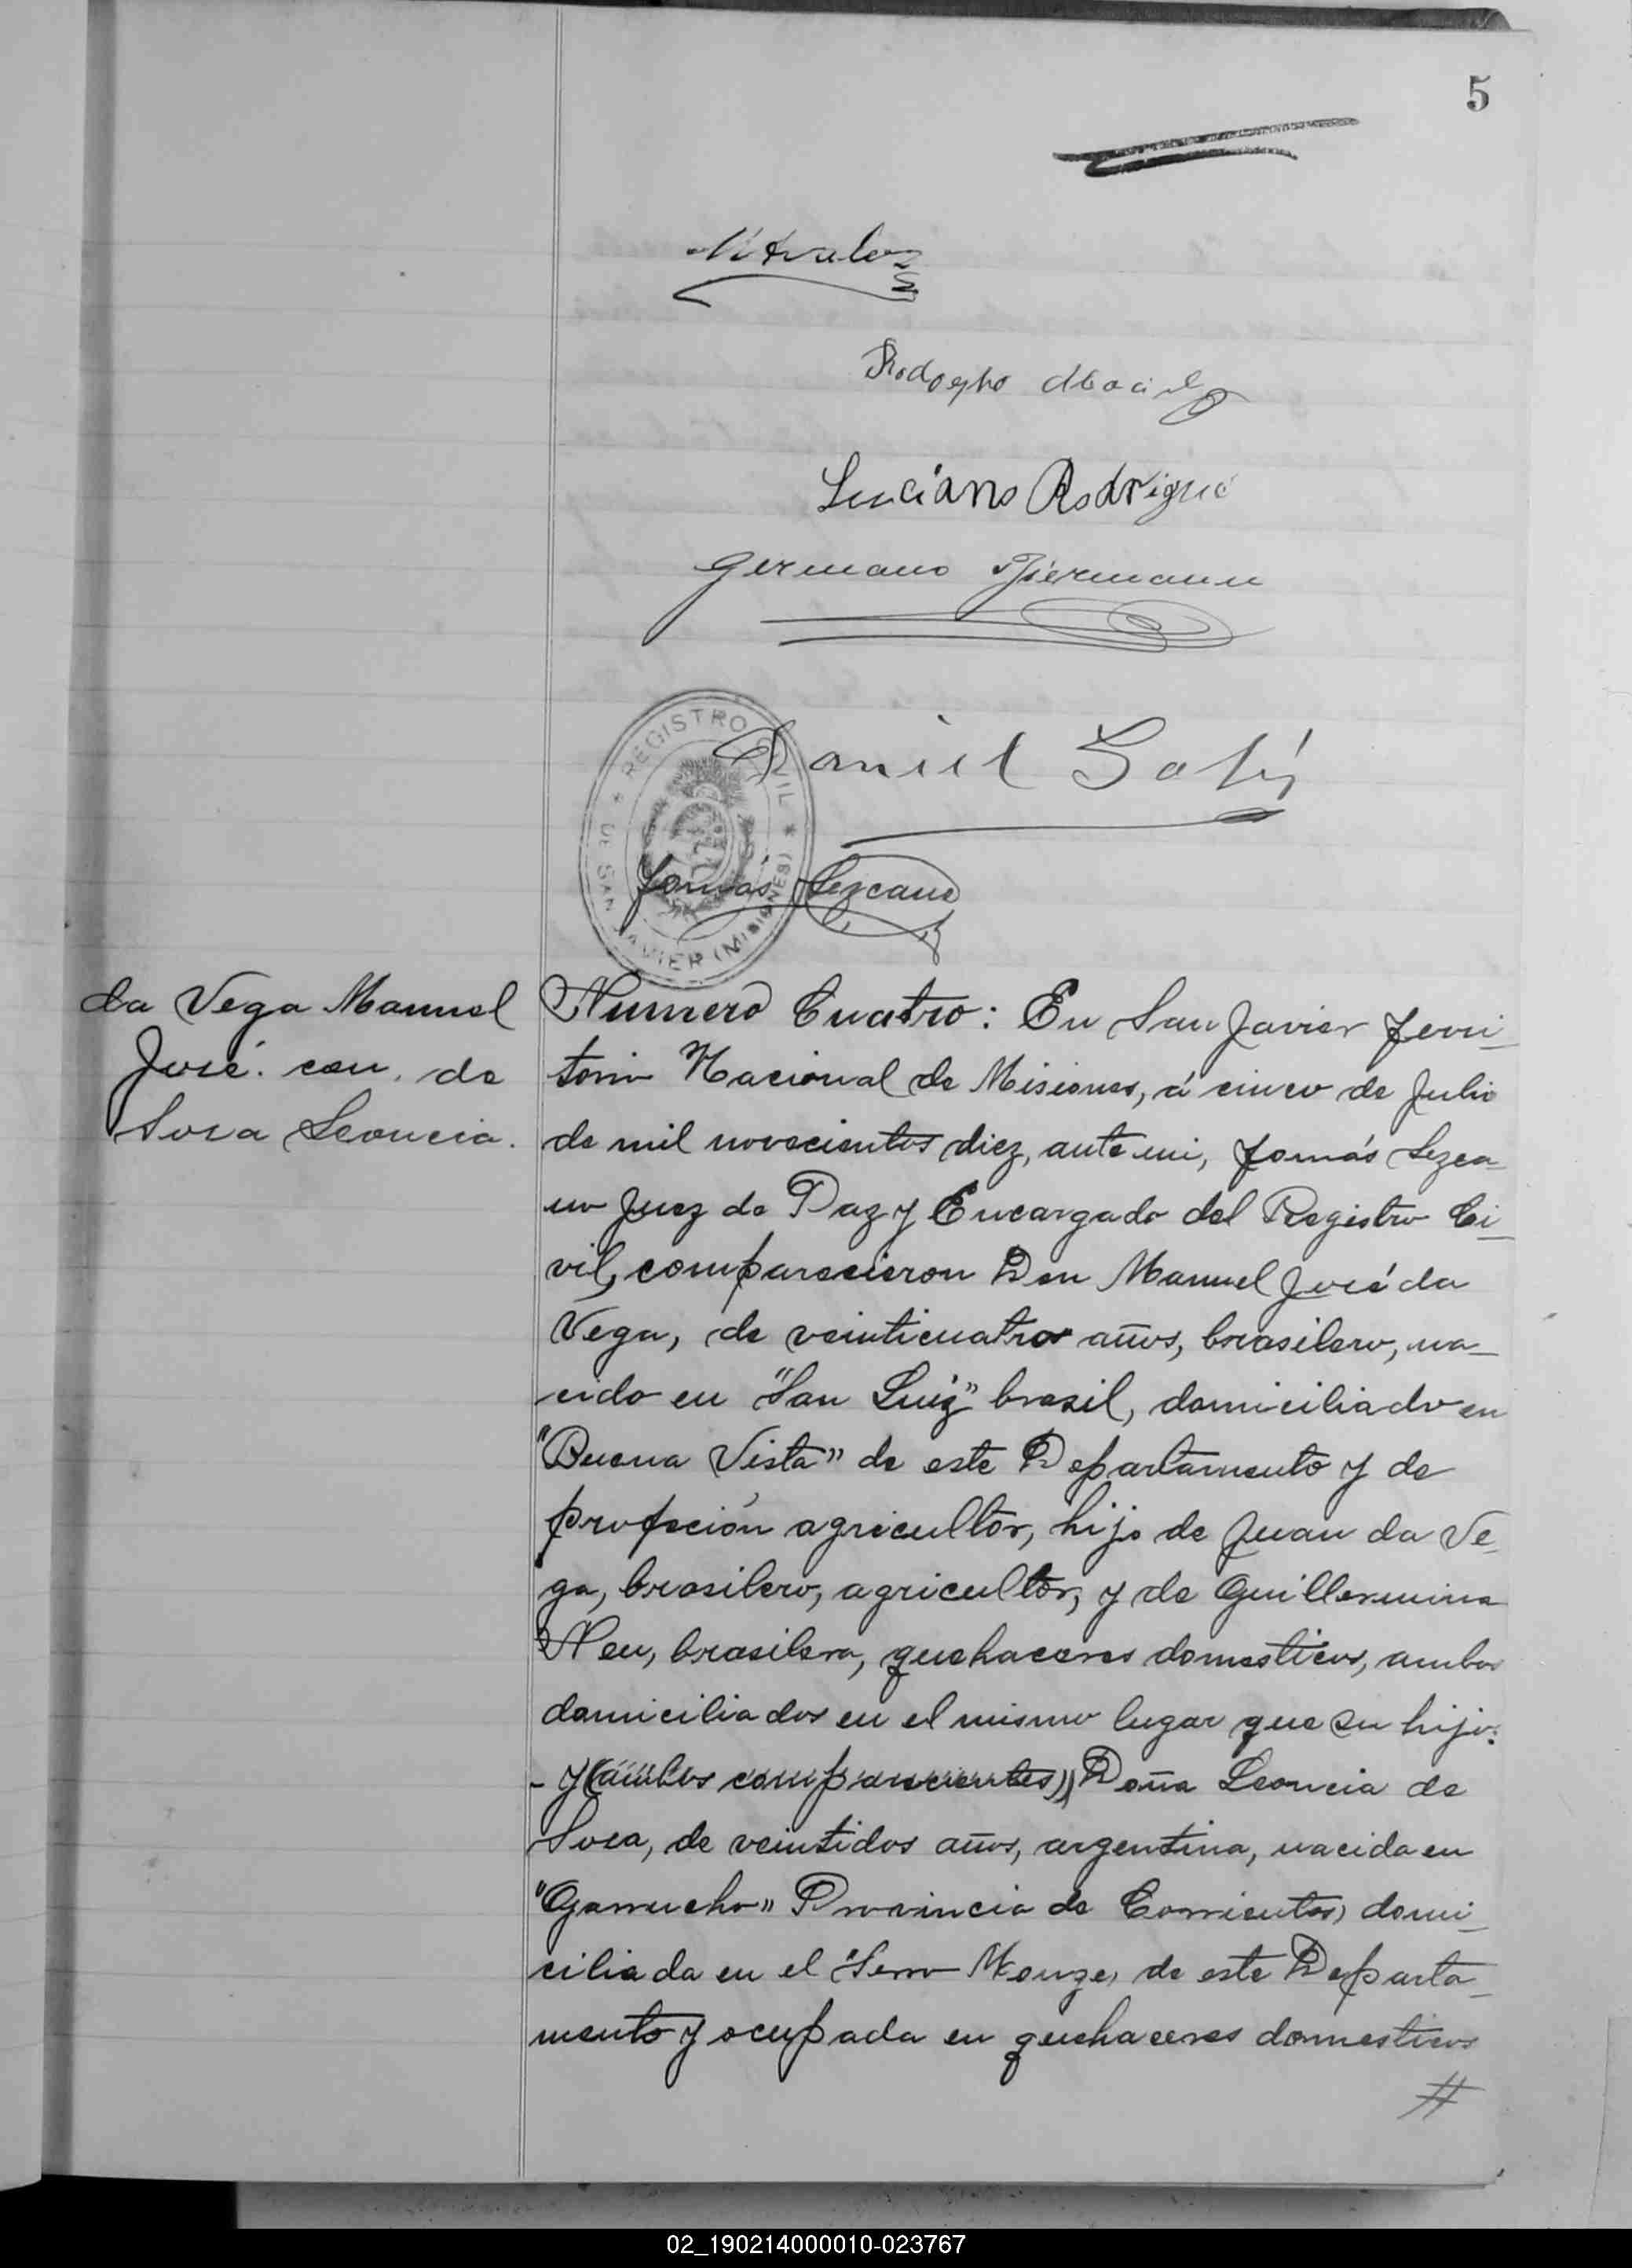 5
Luciano Rodrigue
Germano Biermann
REGISTRO CIVIL
DE SAN JAVIER (MISIONES)
Daniel
Tomás Lezcano
da Vega Manuel
José. con. de
Sosa Leoncia.
Numero Cuatro: En San Javier Terri_
torio Nacional de Misiones, á cinco de Julio
de mil novecientos diez, ante mi, Tomás Lezca_
no Juez de Paz y Encargado del Registro Ci_
vil, comparecieron Don Manuel José da
Vega, de veinticuatro años, brasilero, na_
cido en "San Luiz" brasil, domiciliado en
"Buena Vista" de este Departamento y de
profeción agricultor, hijo de Juan da Ve_
ga, brasilero, agricultor, y de Guillermina
Neu, brasilera, quehaceres domesticos, ambos
domiciliados en el mismo lugar que su hijo:
- y (ambos comparecientes) Doña Leoncia de
Sosa, de veintidos años, argentina, nacida en
"Garrucho" Provincia de Corrientes, domi_
ciliada en el "Serro Monge, de este Departa_
mento y ocupada en quehaceres domesticos
#
02_190214000010-023767